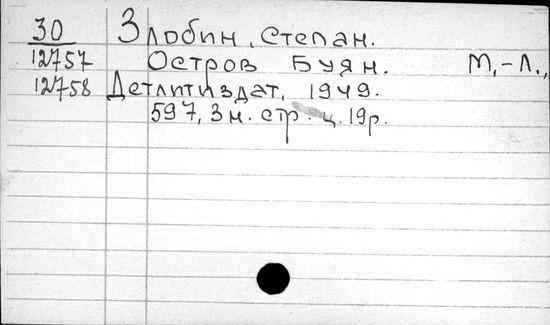 30 Злобин, Степан.
12757 Остров Буян. М,-Л.,
12758 Детлитиздат, 1949.
597, 3 н. стр. ц. 19р.